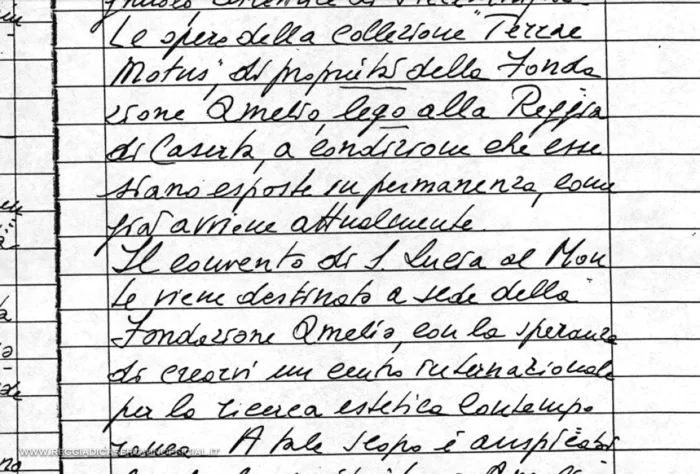 Le opere della Collezione "Terrae
Motus", di proprietà della Fonda
zione Amelio, lego alla Reggia
di Caserta, a condizione che esse
siano esposte in permanenza, come
già avviene attualmente.
Il convento di S. Lucia al Mon
te viene destinato a sede della
Fondazione Amelio, con la speranza
di crearvi un centro internazionale
per la ricerca estetica contempo
ranea. A tale scopo è